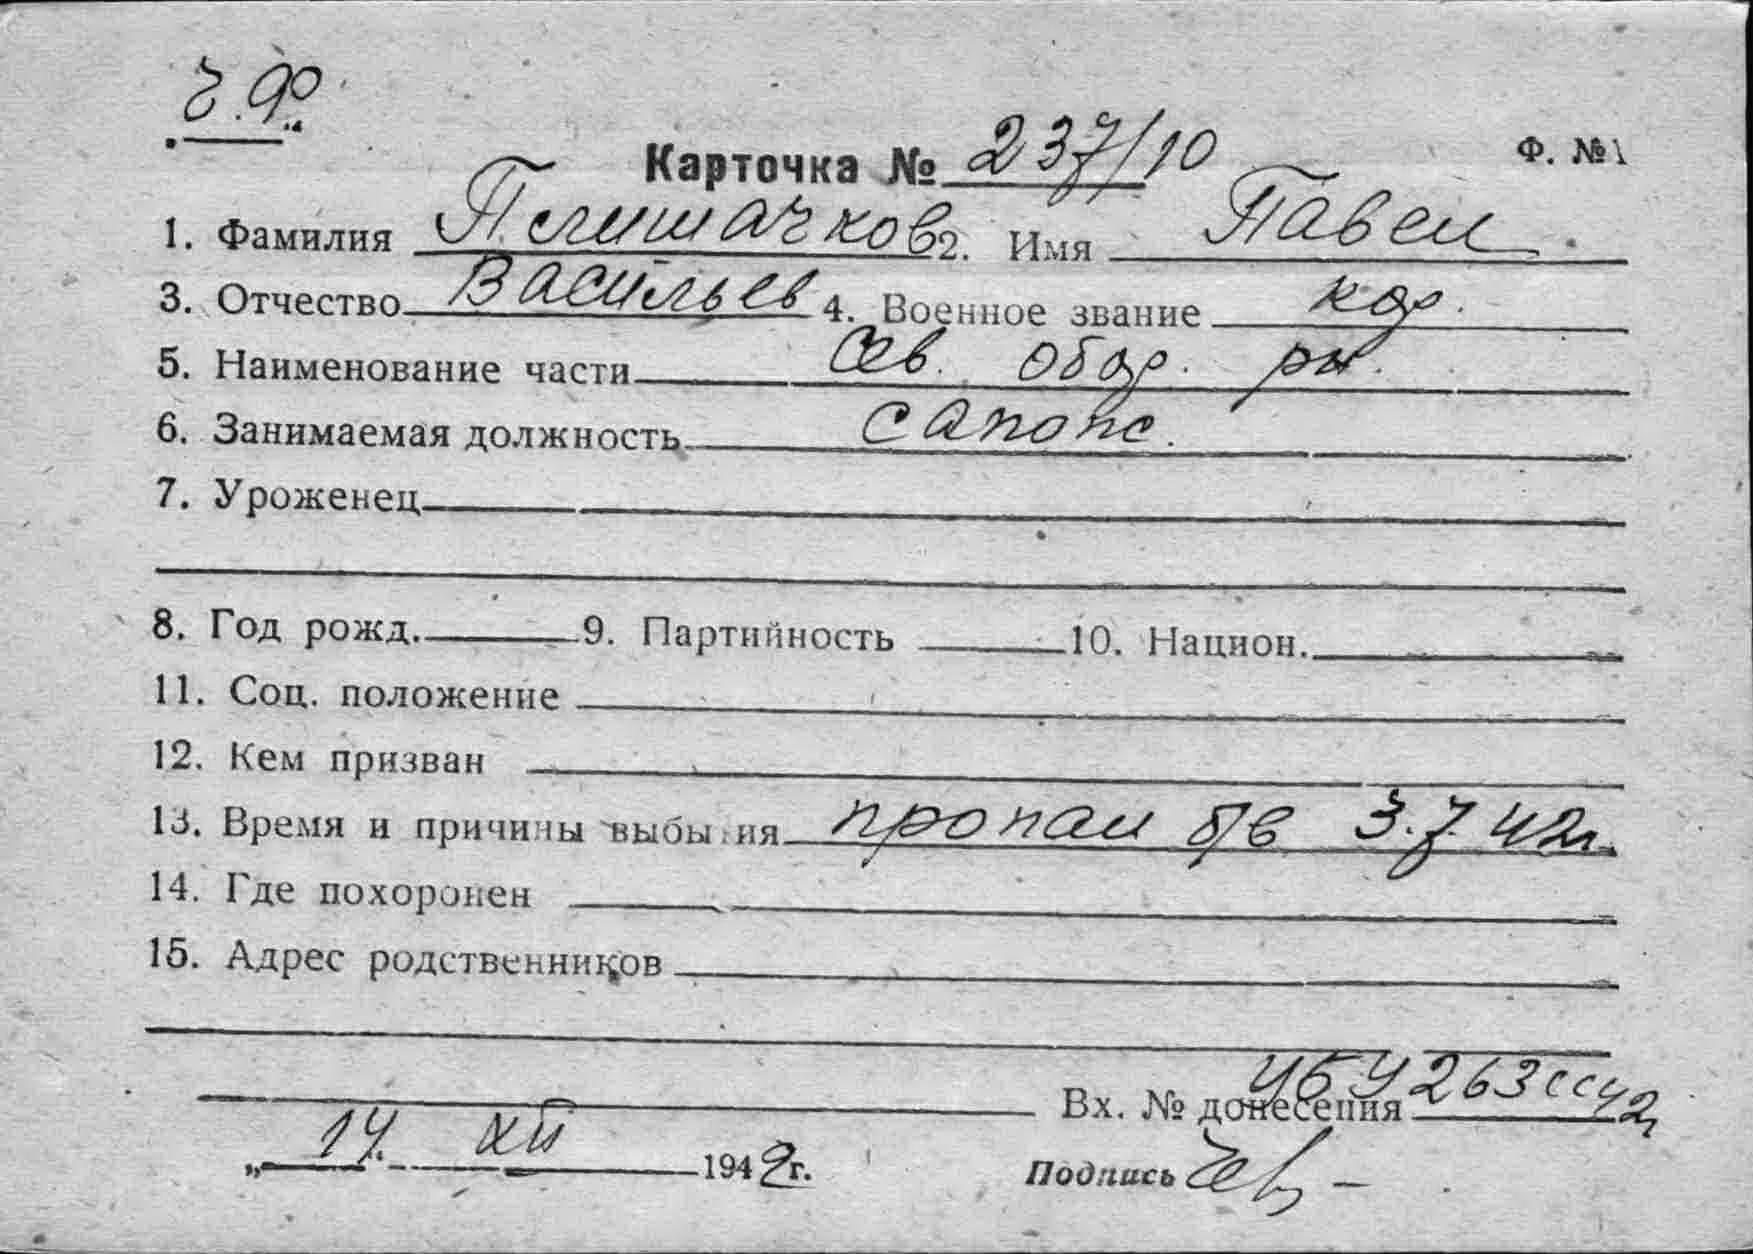 Ч.Ф.
Карточка № 237/10 Ф. №1
1. Фамилия 2. Имя Павел
3. Отчество Васильев 4. Военное звание
5. Наименование части Сев. обор. рн.
6. Занимаемая должность
7. Уроженец
8. Год рожд. 9. Партийность 10. Национ.
11. Соц. положение
12. Кем призван
13. Время и причины выбы ия пропал б/в 3.7.42г.
14. Где похоронен
15. Адрес родственников
Вх. № донесения
„ 14. XII 1942г. Подпись